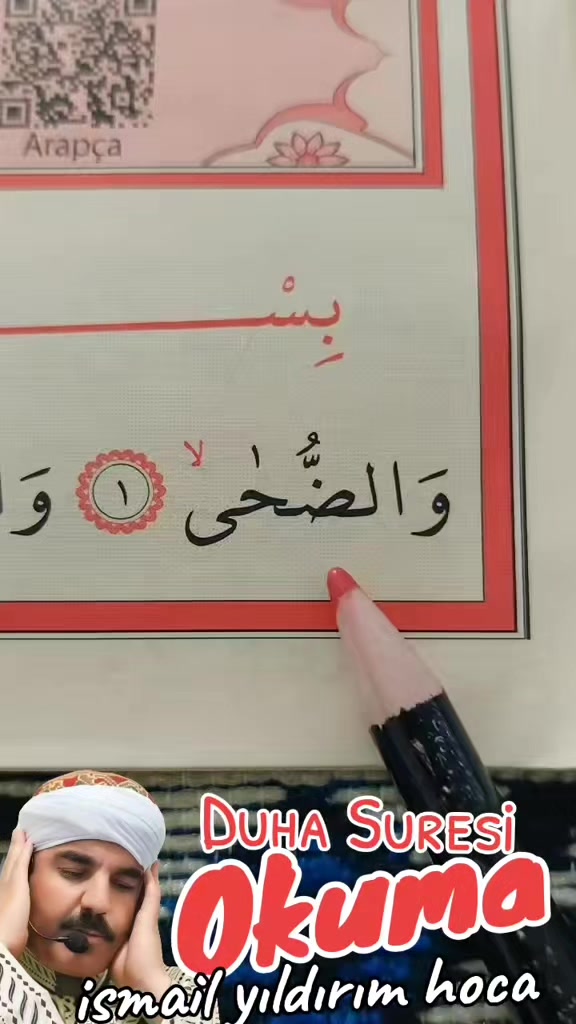 Arapça
بِسْ
وَالضُّحٰىۙ ١ وَ
DUHA SURESİ
Okuma
ismail yıldırım hoca